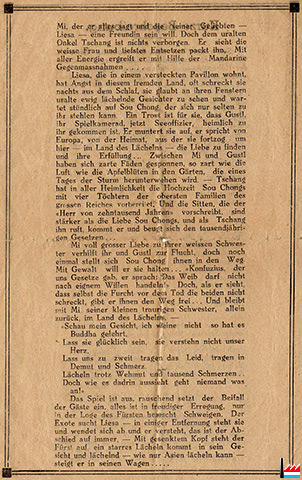 Mi, der er alles sagt und die seiner Geliebten —
Liesa — eine Freundin sein will. Doch dem uralten
Onkel Tschang ist nichts verborgen. Er sieht die
weisse Frau und tiefstes Entsetzen packt ihn. Mit
aller Energie ergreift er mit Hilfe der Mandarine
Gegenmassnahmen
Liesa, die in einem versteckten Pavillon wohnt,
hat Angst in diesem fremden Land, oft schreckt sie
nachts aus dem Schlaf, sie glaubt an ihren Fenstern
uralte ewig lächelnde Gesichter zu sehen und war-
tet stündlich auf Sou Chong, der sich nur selten zu
ihr stehlen kann. Ein Trost ist für sie, dass Gustl,
ihr Spielkamerad, jetzt Seeoffizier, heimlich zu
ihr gekommen ist. Er muntert sie auf, er spricht von
Europa, von der Heimat, aus der sie fortzog um
hier — im Land des Lächelns — die Liebe zu finden
und ihre Erfüllung... Zwischen Mi und Gustl
haben sich zarte Fäden gesponnen, so zart wie die
Luft wie die Apfelblüten in den Gärten, die eines
Tages der Sturm herunterwehen wird. — Tschang
hat in aller Heimlichkeit die Hochzeit Sou Chongs
mit vier Töchtern der obersten Familien des
grossen Reiches vorbereitet. Und die Sitten, die der
«Herr von zehntausend Jahren» vorschreibt, sind
stärker als die Liebe Sou Chongs, und als Tschang
ihn ruft, kommt er und beugt sich den tausendjähri-
gen Gesetzen...
Mi voll grosser Liebe zu ihrer weissen Schwes-
ter verhilft ihr und Gustl zur Flucht, doch noch
einmal stellt sich Sou Chong ihnen in den Weg
Mit Gewalt will er sie halten... «Konfuzius, der
uns Gesetze gab, er sprach: Das Weib darf nicht
nach eignem Willen handeln!» Doch, als er sieht,
dass selbst die Furcht vor dem Tod die beiden nicht
schreckt, gibt er ihnen den Weg frei... Und bleibt
mit Mi seiner kleinen traurigen Schwester, allein
zurück, im Land des Lächelns. —
«Schau mein Gesicht, ich weine nicht so hat es
Buddha gelehrt,
Lass sie glücklich sein, sie verstehn nicht unser
Herz.
Lass uns zu zweit tragen das Leid, tragen in
Demut und Schmerz.
Lächeln trotz Wehmut und tausend Schmerzen..
Doch wie es dadrin aussieht geht niemand was
an!»
Das Spiel ist aus, rauschend setzt der Beifall
der Gäste ein, alles ist in freudiger Erregung, nur
in der Loge des Fürsten herrscht Schweigen. Der
Exote sucht Liesa — in einiger Entfernung steht sie
und wendet sich ab und er versteht, das ist der Ab-
schied auf immer. — Mit gesenktem Kopf steht der
Fürst auf, ein starres Lächeln kommt in sein Ge-
sicht und lächelnd — wie nur Asien lächeln kann —
steigt er in seinen Wagen.....